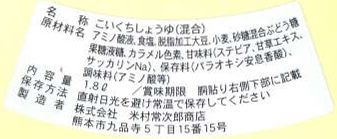 名称 こいくちしょうゆ(混合)
原材料名 アミノ酸液、食塩、脱脂加工大豆、小麦、砂糖混合ぶどう糖
果糖液糖、カラメル色素、甘味料(ステビア、甘草エキス、
サッカリンNa)、保存料(パラオキシ安息香酸)、
調味料(アミノ酸等)
内容量 1.8ℓ/賞味期限 胴貼り右側下部に記載
保存方法 直射日光を避け常温で保存してください
製造者 株式会社 米村常次郎商店
熊本市九品寺5丁目15番15号